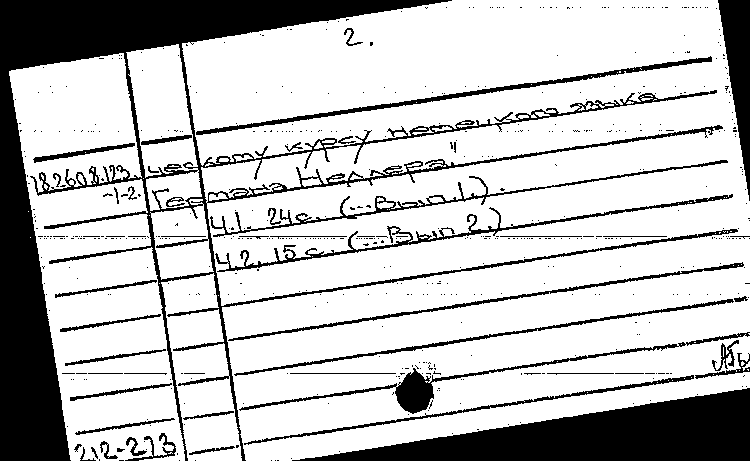 2.
18.260.8.123. ческому курсу немецкого языка
-1-2. Германа Недлера."
Ч.1. 24с. (...Вып.1.).
Ч.2. 15 с. (...Вып 2.)
212-273